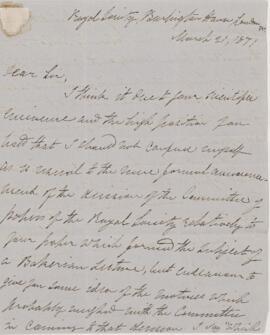 Royal Society, Burlington House London
March 21, 1871
Dear Sir,
I think it due to your scientific
eminence and the high position you
hold that I should not confine myself
as is usual to the mere formal announce-
ment of the decision of the Committee of
papers of the Royal Society relatively to
your paper which formed the subject of
a Bakerian Lecture, but endeavour to
give you some idea of the motives which
probably weighed with the Committee
in coming to that decision. I say